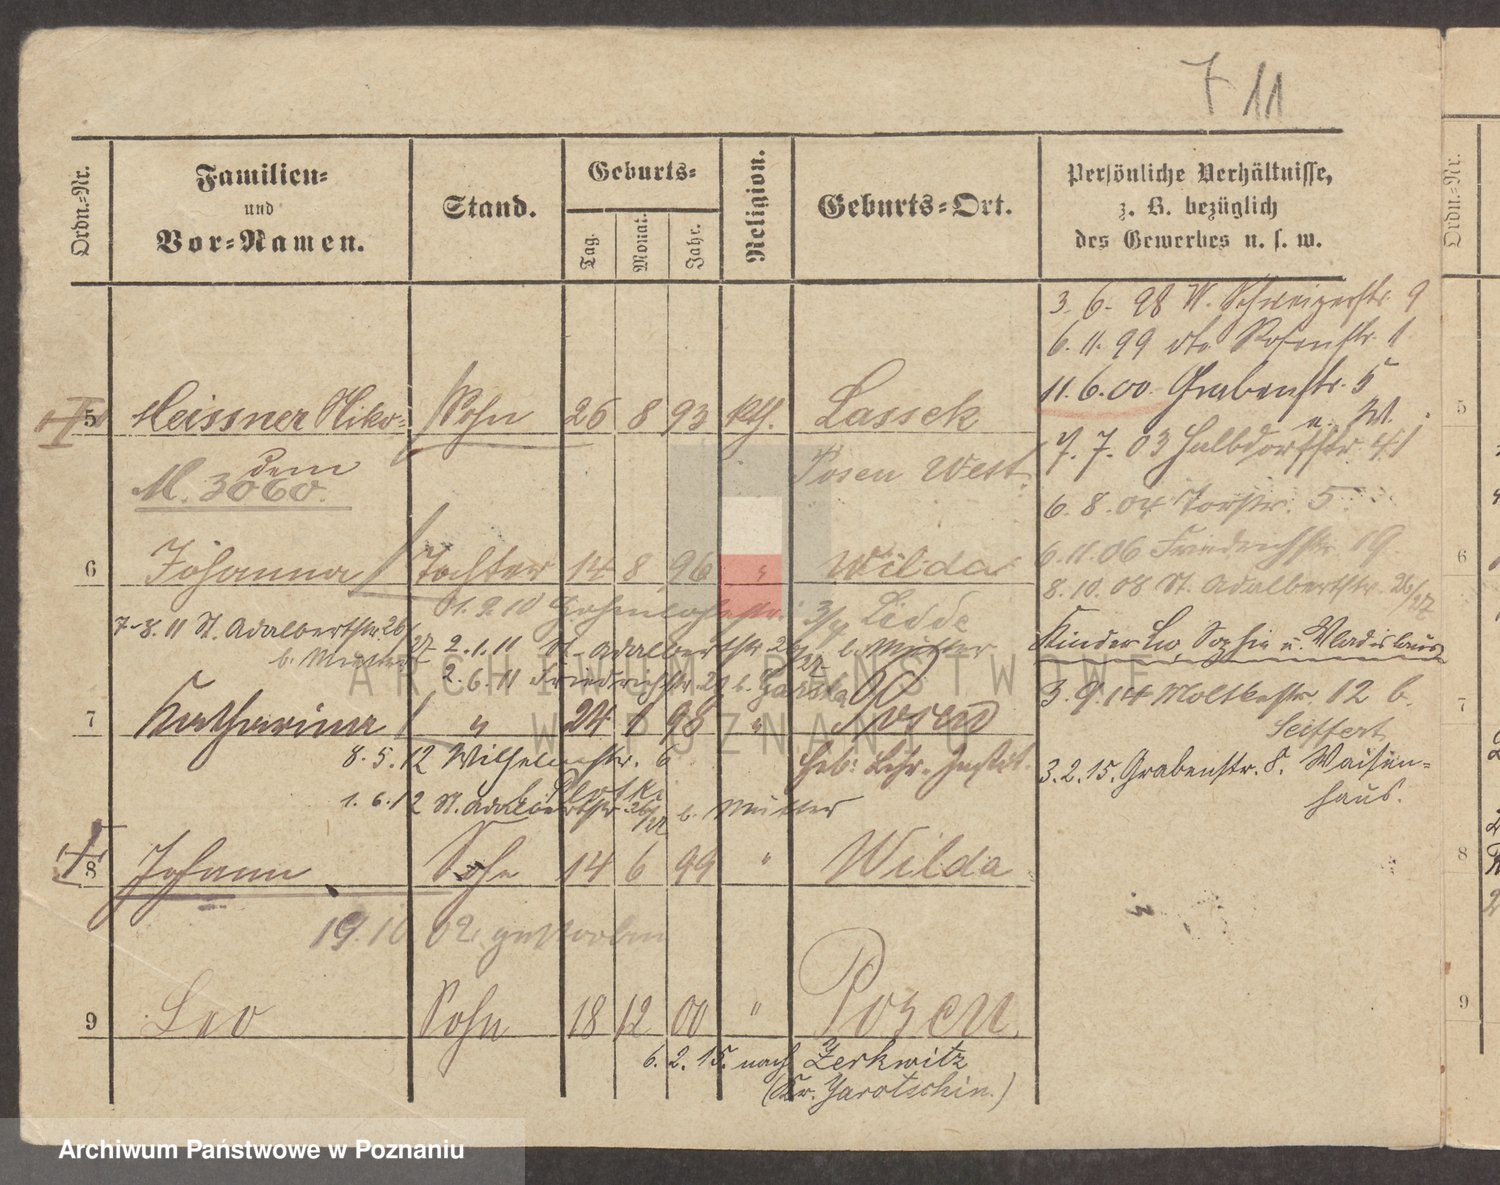 7 11
Ordn.-Nr.
Familien-
und
Vor-Namen.
Stand.
Geburts-
Tag.
Monat.
Jahr.
Religion.
Geburts-Ort.
Persönliche Verhältnisse,
z. B. bezüglich
des Gewerbes u. s. w.
Ordn.-Nr.
3. 6. 98 W. Schweizerstr. 9
6. 11. 99 dto Rosenstr. 1
11. 6. 00. Grabenstr. 5
5 Meissner Niko= Sohn 26 8 93 kth. Lassek
u. W.
dem
M. 3060.
Posen West.
7. 7. 03 Halbdorfstr. 41
6. 8. 04 Torstr. 5
6 Johanna Tochter 14 8 96 " Wilda
6. 11. 06 Friedrichstr. 19
8. 10. 08 St. Adalbertstr. 26/27
01. 9. 10 Hohenlohestr.
7. 8. 11 St. Adalbertstr. 26/27
b. Mutter
2. 1. 11 St. Adalbertstr. 26/27 b. Mutter
2. 6. 11 Friedrichstr. 29 b.
Kinder Leo, Sophie u. Wladislaus
7 Katharina " 24 1 98 " Posen
3. 9. 14 Moltkestr. 12 b.
Seiffert
8. 5. 12 Wilhelmstr. 6
Heb. Lehr. Instit.
3. 2. 15. Grabenstr. 8. Waisen=
haus.
1. 6. 12 St. Adalbertstr. 26/27 b. Mutter
8 Johann Sohn 14 6 99 " Wilda
19. 10 02. gestorben
9 Leo Sohn 18 12 00 " Posen
6. 2. 15. nach Zerkwitz
(Kr. Jarotschin.)
5
6
7
8
9
ARCHIWUM PAŃSTWOWE
W POZNANIU
Archiwum Państwowe w Poznaniu